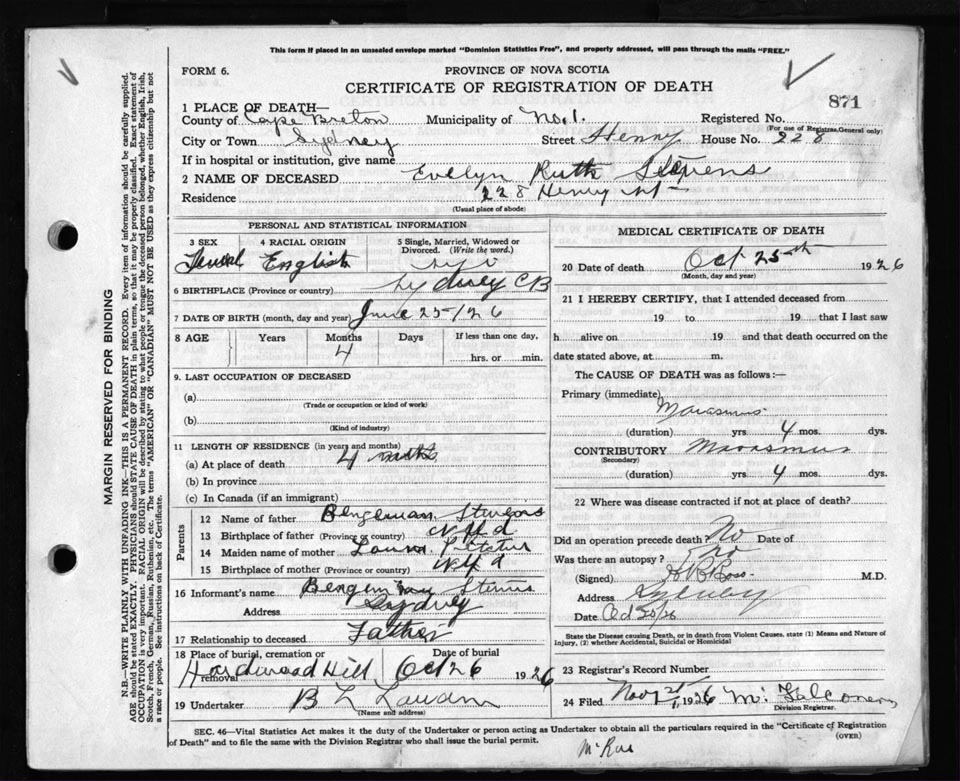 This form if placed in an unsealed envelope marked "Dominion Statistics Free", and properly addressed, will pass through the mails "FREE."
FORM 6.
PROVINCE OF NOVA SCOTIA
CERTIFICATE OF REGISTRATION OF DEATH
871
1 PLACE OF DEATH—
County of Cape Breton Municipality of No. 1. Registered No.
(For use of Registrar General only)
City or Town Sydney Street Henry House No. 228
If in hospital or institution, give name
2 NAME OF DECEASED Evelyn Ruth
Residence 228 Henry St
(Usual place of abode)
PERSONAL AND STATISTICAL INFORMATION
3 SEX 4 RACIAL ORIGIN 5 Single, Married, Widowed or Divorced. (Write the word.)
English
6 BIRTHPLACE (Province or country) Sydney CB
7 DATE OF BIRTH (month, day and year) June 25/26
8 AGE Years Months Days If less than one day,
4 hrs. or min.
9. LAST OCCUPATION OF DECEASED
(a)
(Trade or occupation or kind of work)
(b)
(Kind of industry)
11 LENGTH OF RESIDENCE (in years and months)
(a) At place of death 4
(b) In province
(c) In Canada (if an immigrant)
Parents
12 Name of father
13 Birthplace of father (Province or country) Nfld
14 Maiden name of mother Laura
15 Birthplace of mother (Province or country) Nfld
16 Informant's name
Address Sydney
17 Relationship to deceased Father
18 Place of burial, cremation or removal Hardwood Hill Date of burial Oct 26 1926
19 Undertaker B L
(Name and address)
MEDICAL CERTIFICATE OF DEATH
20 Date of death Oct 25th 1926
(Month, day and year)
21 I HEREBY CERTIFY, that I attended deceased from
19 to 19 that I last saw
h alive on 19 and that death occurred on the
date stated above, at m.
The CAUSE OF DEATH was as follows:—
Primary (immediate)
Marasmus
(duration) yrs 4 mos. dys.
CONTRIBUTORY Marasmus
(Secondary)
(duration) yrs 4 mos. dys.
22 Where was disease contracted if not at place of death?
Did an operation precede death? No Date of
Was there an autopsy? No
(Signed) M.D.
Address Sydney
Date Oct
State the Disease causing Death, or in death from Violent Causes, state (1) Means and Nature of
Injury, (2) whether Accidental, Suicidal or Homicidal
23 Registrar's Record Number
24 Filed Nov 1926
Division Registrar.
SEC. 46—Vital Statistics Act makes it the duty of the Undertaker or person acting as Undertaker to obtain all the particulars required in the "Certificate of Registration
of Death" and to file the same with the Division Registrar who shall issue the burial permit.
(OVER)
MARGIN RESERVED FOR BINDING
N.B.—WRITE PLAINLY WITH UNFADING INK—THIS IS A PERMANENT RECORD. Every item of information should be carefully supplied.
AGE should be stated EXACTLY. PHYSICIANS should STATE CAUSE OF DEATH in plain terms, so that it may be properly classified. Exact statement of
OCCUPATION is very important. RACIAL ORIGIN will be described by stating to what people or tongue the deceased person belonged, whether English, Irish,
Scotch, French, German, Russian, Ruthenian, etc. The terms "AMERICAN" OR "CANADIAN" MUST NOT BE USED as they express citizenship but not
a race or people. See instructions on back of Certificate.